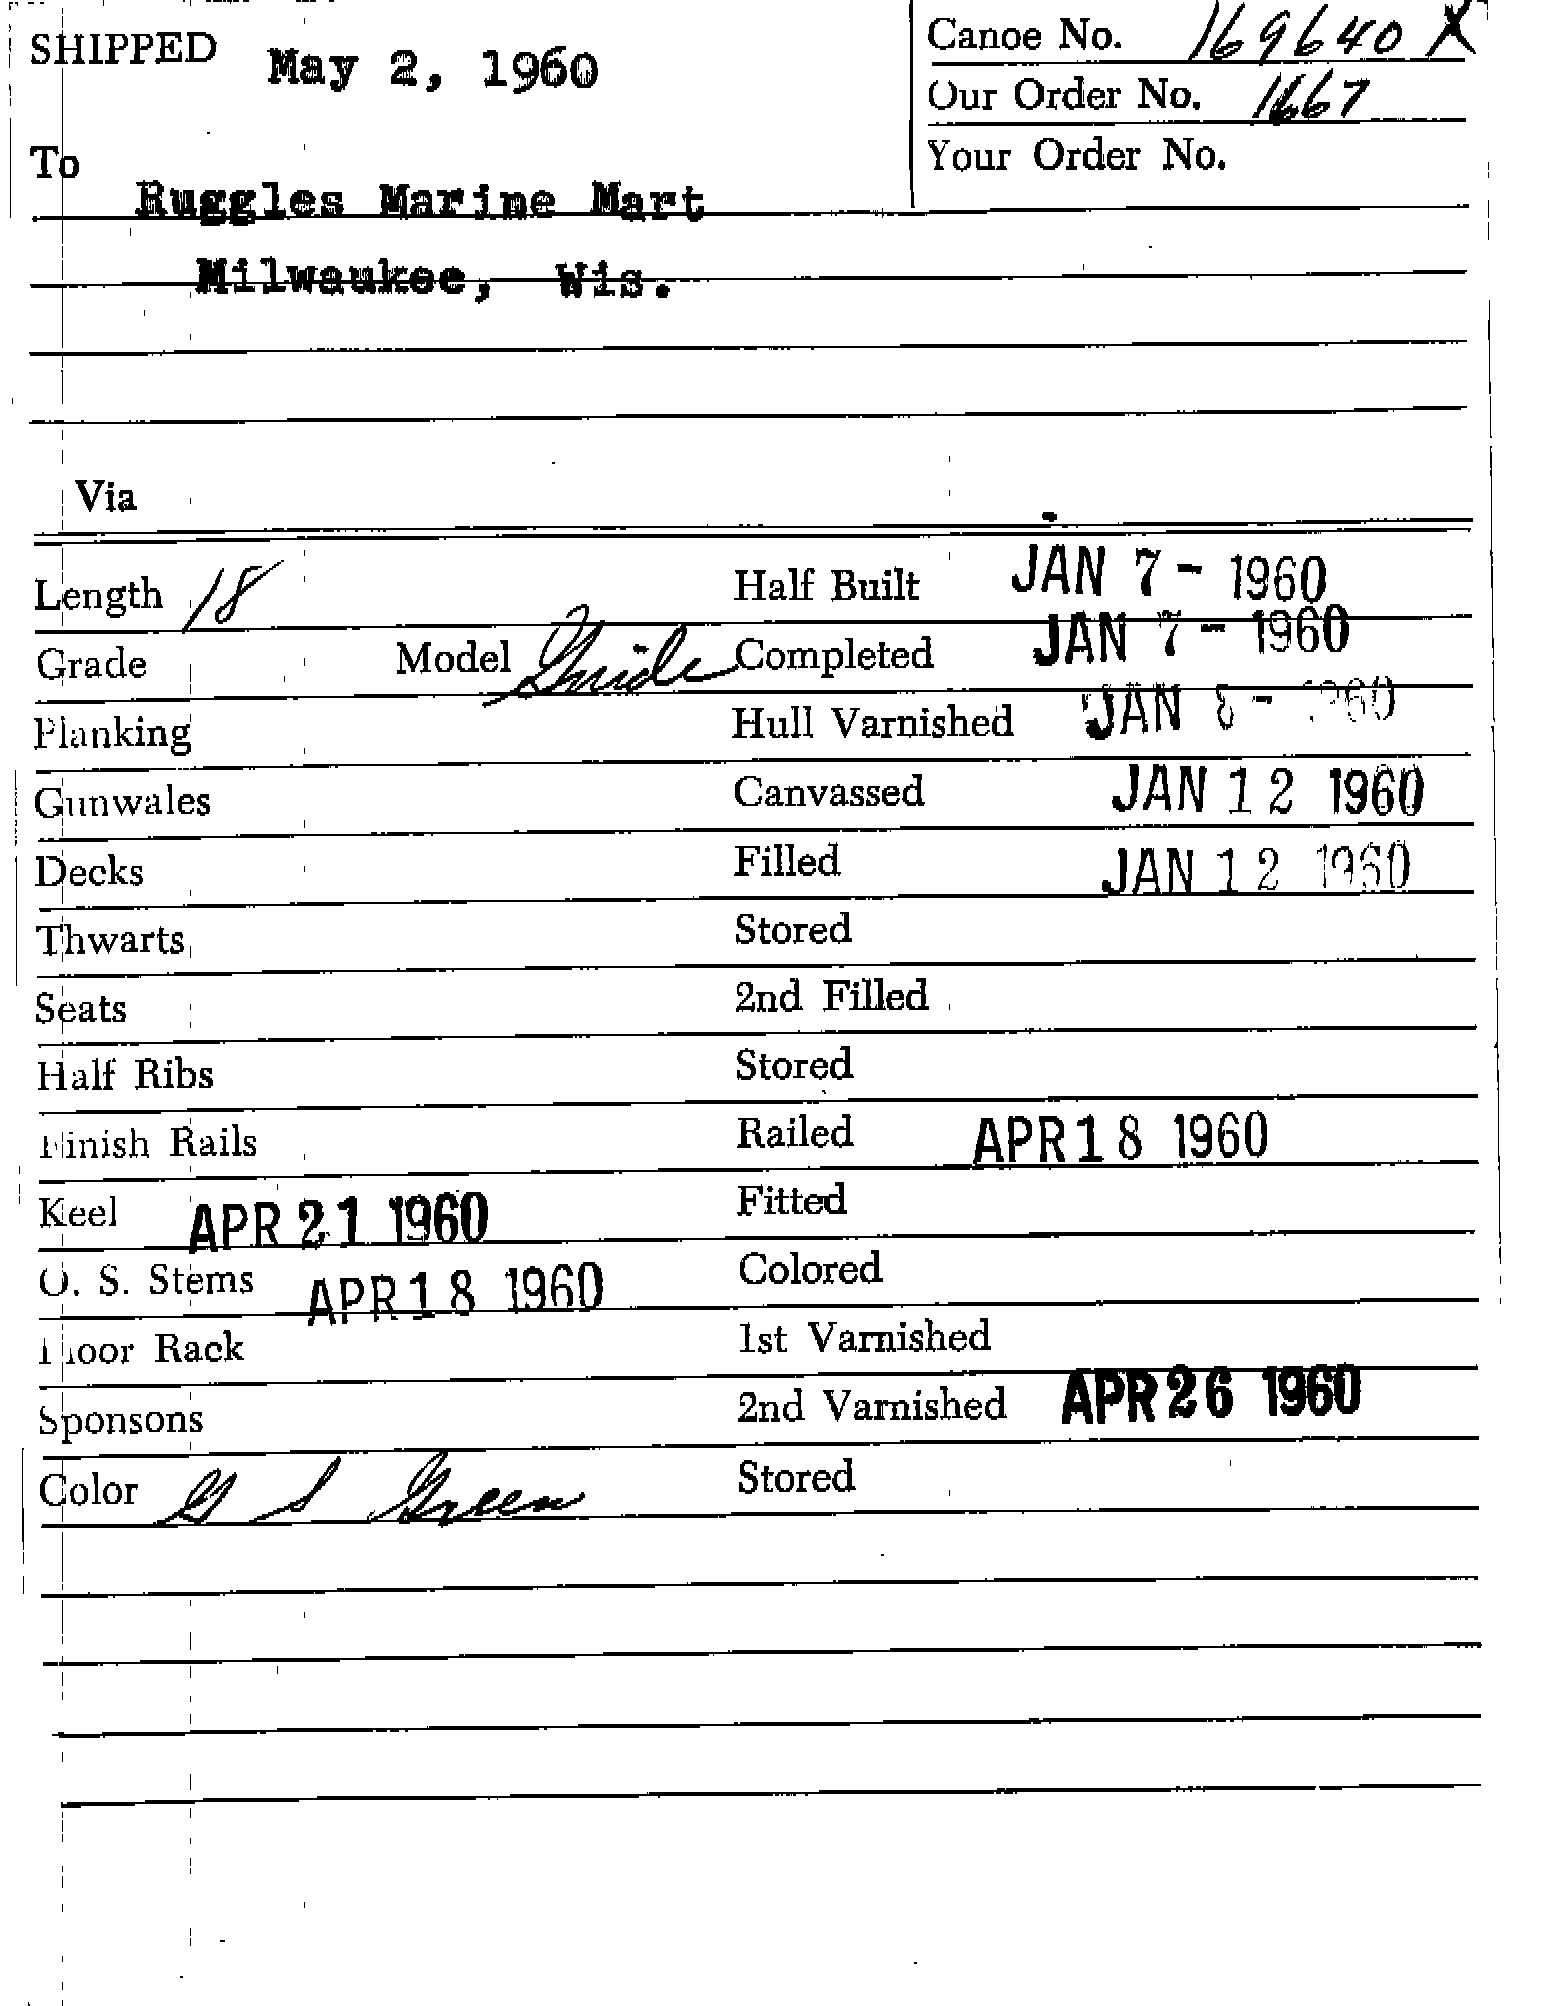 SHIPPED May 2, 1960
Canoe No. 169640 X
Our Order No. 1667
Your Order No.
To
Ruggles Marine Mart
Milwaukee, Wis.
Via
Length 18
Half Built JAN 7 - 1960
Grade
Model Guide
Completed JAN 7 - 1960
Planking
Hull Varnished JAN 8 - 1960
Gunwales
Canvassed JAN 12 1960
Decks
Filled JAN 12 1960
Thwarts
Stored
Seats
2nd Filled
Half Ribs
Stored
Finish Rails
Railed APR 18 1960
Keel APR 21 1960
Fitted
O. S. Stems APR 18 1960
Colored
Floor Rack
1st Varnished
Sponsons
2nd Varnished APR 26 1960
Color G S Green
Stored